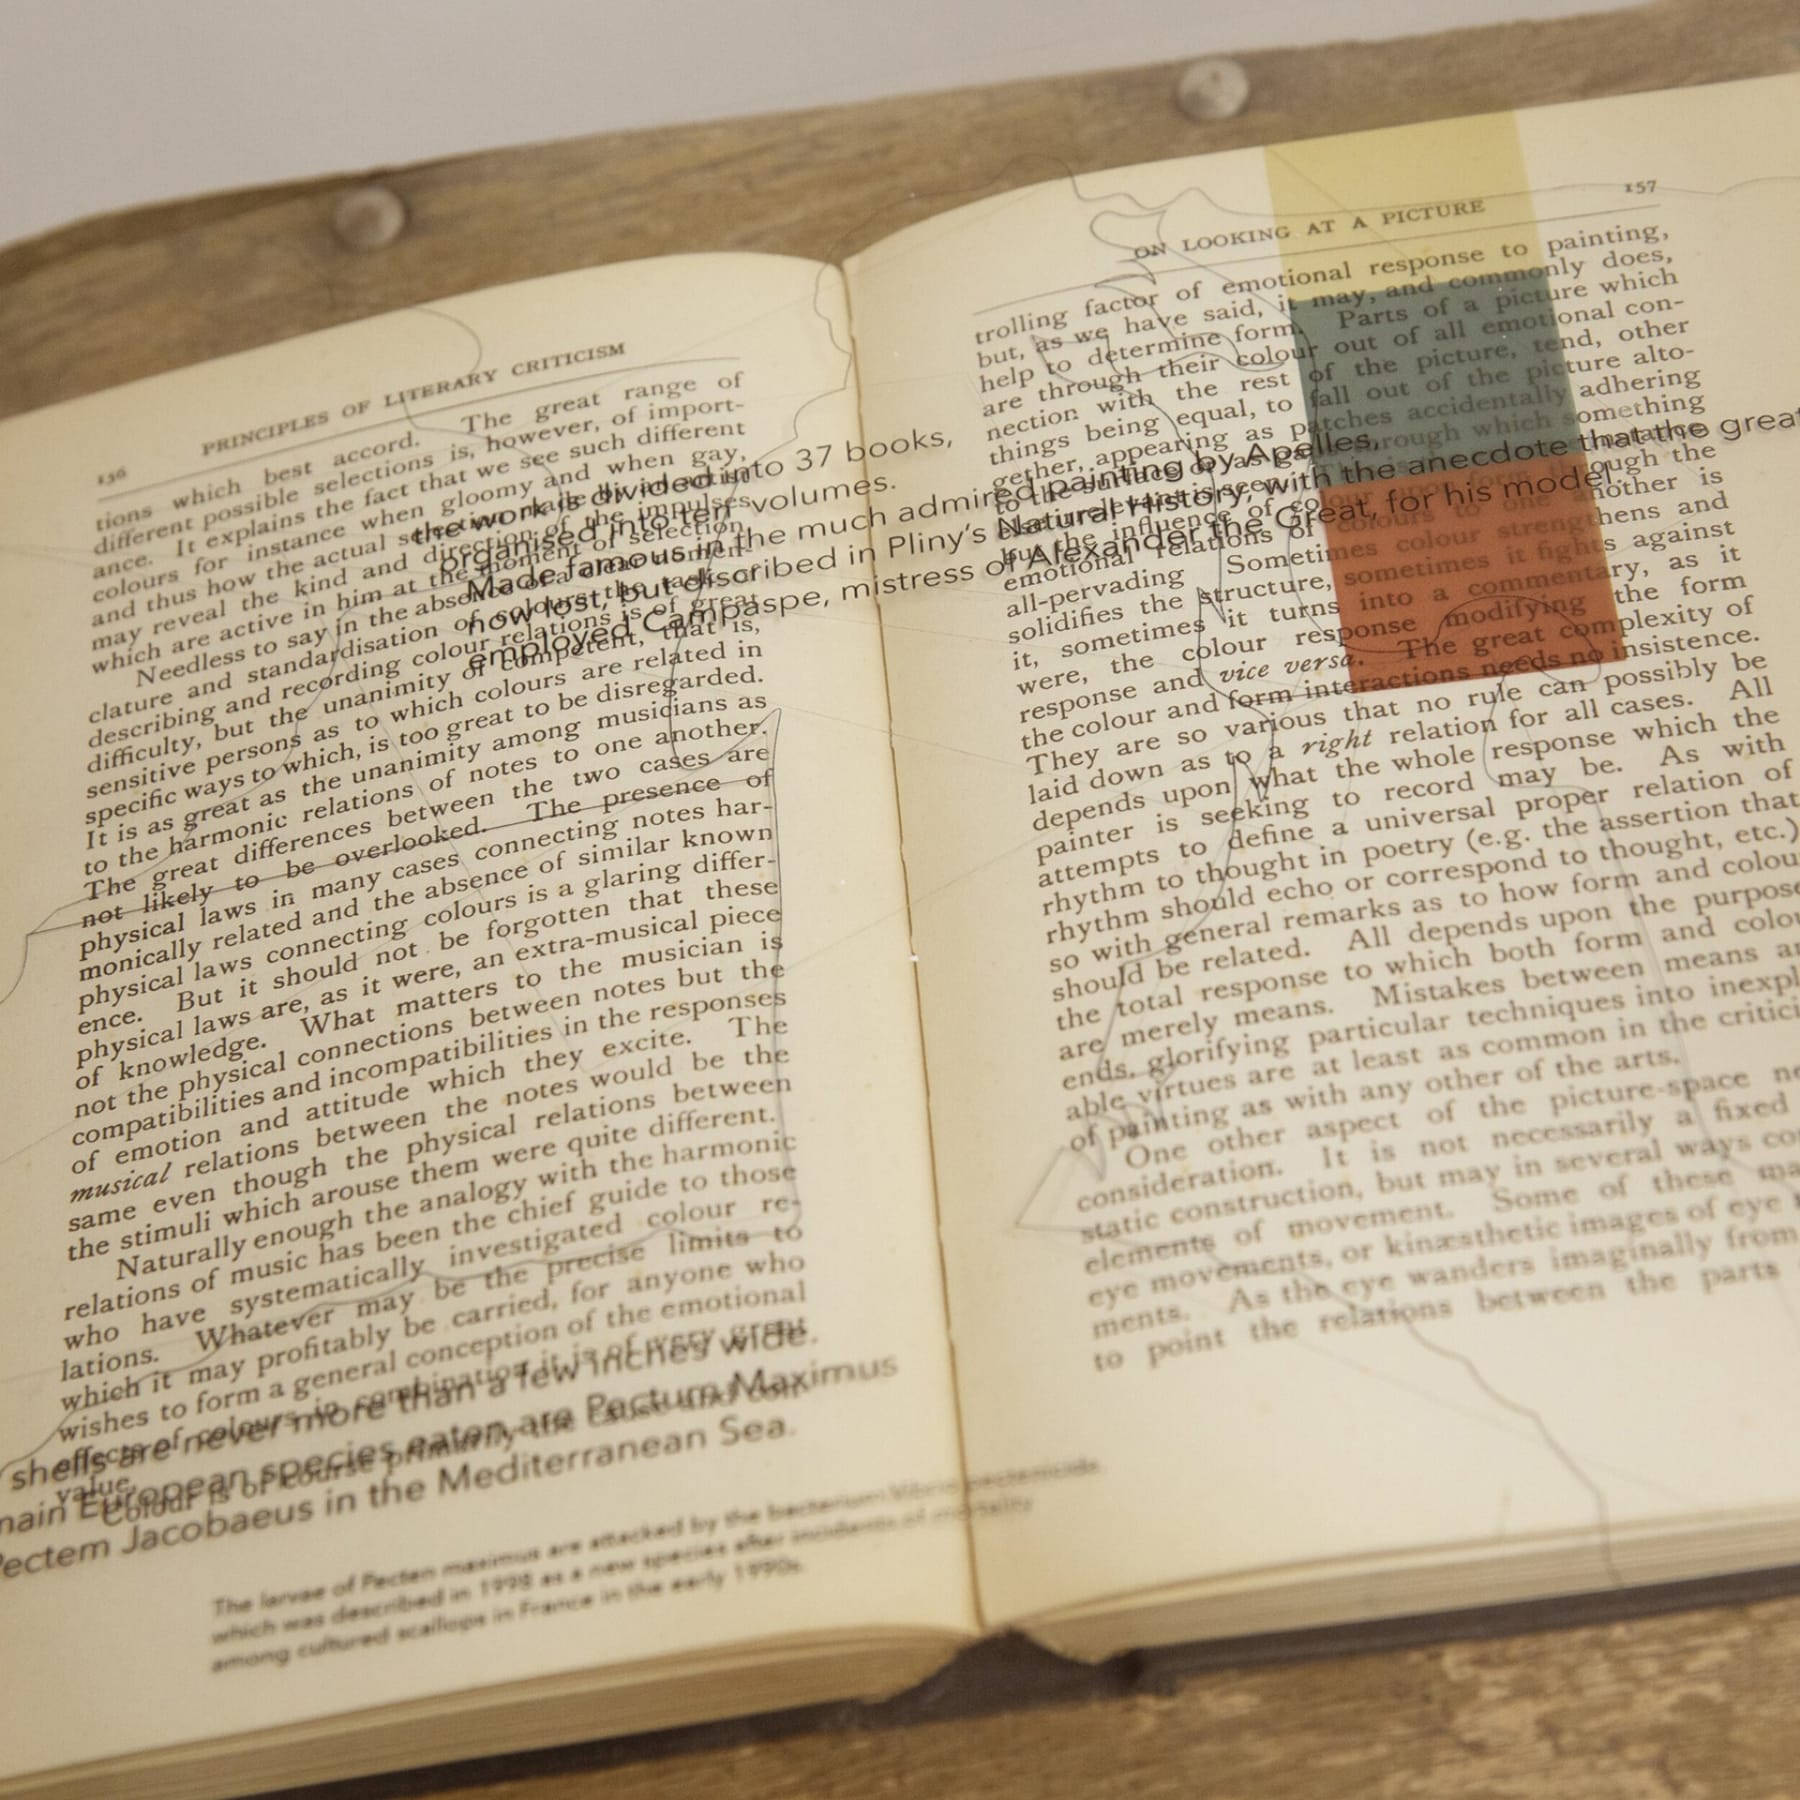 156
PRINCIPLES OF LITERARY CRITICISM
tions which best accord. The great range of
different possible selections is, however, of import-
ance. It explains the fact that we see such different
colours for instance when gloomy and when gay,
and thus how the actual
may reveal the kind and direction of the impulses
which are active in him at the moment of selection
Needless to say in the absence of a
clature and standardisation of colours the task of
describing and recording colour relations is of great
difficulty, but the unanimity of competent, that is,
sensitive persons as to which colours are related in
specific ways to which, is too great to be disregarded.
It is as great as the unanimity among musicians as
to the harmonic relations of notes to one another.
The great differences between the two cases are
not likely to be overlooked. The presence of
physical laws in many cases connecting notes har-
monically related and the absence of similar known
physical laws connecting colours is a glaring differ-
ence. But it should not be forgotten that these
physical laws are, as it were, an extra-musical piece
of knowledge. What matters to the musician is
not the physical connections between notes but the
compatibilities and incompatibilities in the responses
of emotion and attitude which they excite. The
musical relations between the notes would be the
same even though the physical relations between
the stimuli which arouse them were quite different.
Naturally enough the analogy with the harmonic
relations of music has been the chief guide to those
who have systematically investigated colour re-
lations. Whatever may be the precise limits to
which it may profitably be carried, for anyone who
wishes to form a general conception of the emotional
effects of colours in combination it is of very great
value.
Colour is of course primarily the cause and con-
the work is divided into 37 books,
organised into ten volumes.
Made famous in the much admired painting by Apelles,
now lost, but described in Pliny's Natural History, with the anecdote that the great
employed Campaspe, mistress of Alexander the Great, for his model.
shells are never more than a few inches wide.
main European species eaten are Pectum Maximus
Pectem Jacobaeus in the Mediterranean Sea.
The larvae of Pecten maximus are attacked by the bacterium Vibrio pectenicida,
which was described in 1998 as a new species after incidents of mortality
among cultured scallops in France in the early 1990s.
ON LOOKING AT A PICTURE
157
trolling factor of emotional response to painting,
but, as we have said, it may, and commonly does,
help to determine form. Parts of a picture which
are through their colour out of all emotional con-
nection with the rest of the picture, tend, other
things being equal, to fall out of the picture alto-
gether, appearing as patches accidentally adhering
to the surface or as gaps through which something
else is seen.
but the influence of colour upon form through the
emotional relations of colours to one another is
all-pervading Sometimes colour strengthens and
solidifies the structure, sometimes it fights against
it, sometimes it turns into a commentary, as it
were, the colour response modifying the form
response and vice versa. The great complexity of
the colour and form interactions needs no insistence.
They are so various that no rule can possibly be
laid down as to a right relation for all cases. All
depends upon what the whole response which the
painter is seeking to record may be. As with
attempts to define a universal proper relation of
rhythm to thought in poetry (e.g. the assertion that
rhythm should echo or correspond to thought, etc.)
so with general remarks as to how form and colou
should be related. All depends upon the purpose
the total response to which both form and colou
are merely means. Mistakes between means a
ends, glorifying particular techniques into inexpl
able virtues are at least as common in the critici
of painting as with any other of the arts.
One other aspect of the picture-space ne
consideration. It is not necessarily a fixed
static construction, but may in several ways co
elements of movement. Some of these ma
eye movements, or kinæsthetic images of eye
ments. As the eye wanders imaginally from
to point the relations between the parts